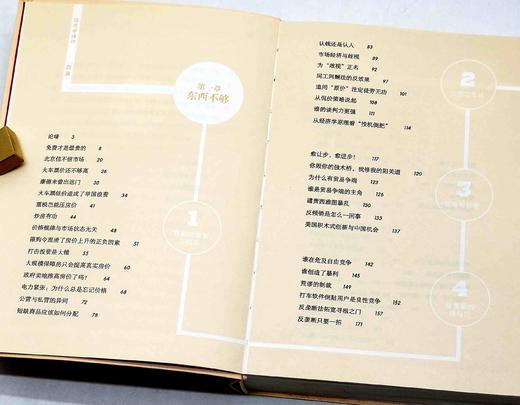 目录
第一章
东西不够
论堵 3
免费才是最贵的 8
北京估不倒市场 20
火车票价还不够高 26
康德未曾出远门 30
火车票低价造成了举国浪费 34
重税岂能压房价 37
炒房有功 44
价格规律与市场状态无关 46
限购令混淆了房价上升的正负因素 48
打击投资是大错 50
大规模保障房只会提高真实房价 60
政府卖地推高房价了吗? 64
电力紧张:为什么总是忘记价格 68
公营与私营的异同 72
短缺商品应该如何分配 78
1
认钱还是认人 83
市场经济与歧视 89
为“歧视”正名 92
同工同酬法的反效果 97
追问“原价”注定徒劳无功 101
从侃价策略说起 108
谁的谈判力更强 111
从经济学原理看“投机倒把” 114
2
愈让步,愈进步! 117
你毁你的独木桥,我修我的阳关道 120
为什么有贸易争端 121
谁是贸易争端的主角 124
谴责西雅图暴乱 127
反倾销是怎么一回事 133
美国积木式创新与中国机会 137
3
谁在危及自由竞争 142
谁创造了暴利 147
荒谬的制裁 149
打车软件倒贴用户是良性竞争 152
反垄断法拓宽寻租之门 157
反垄断只要一招 171
4